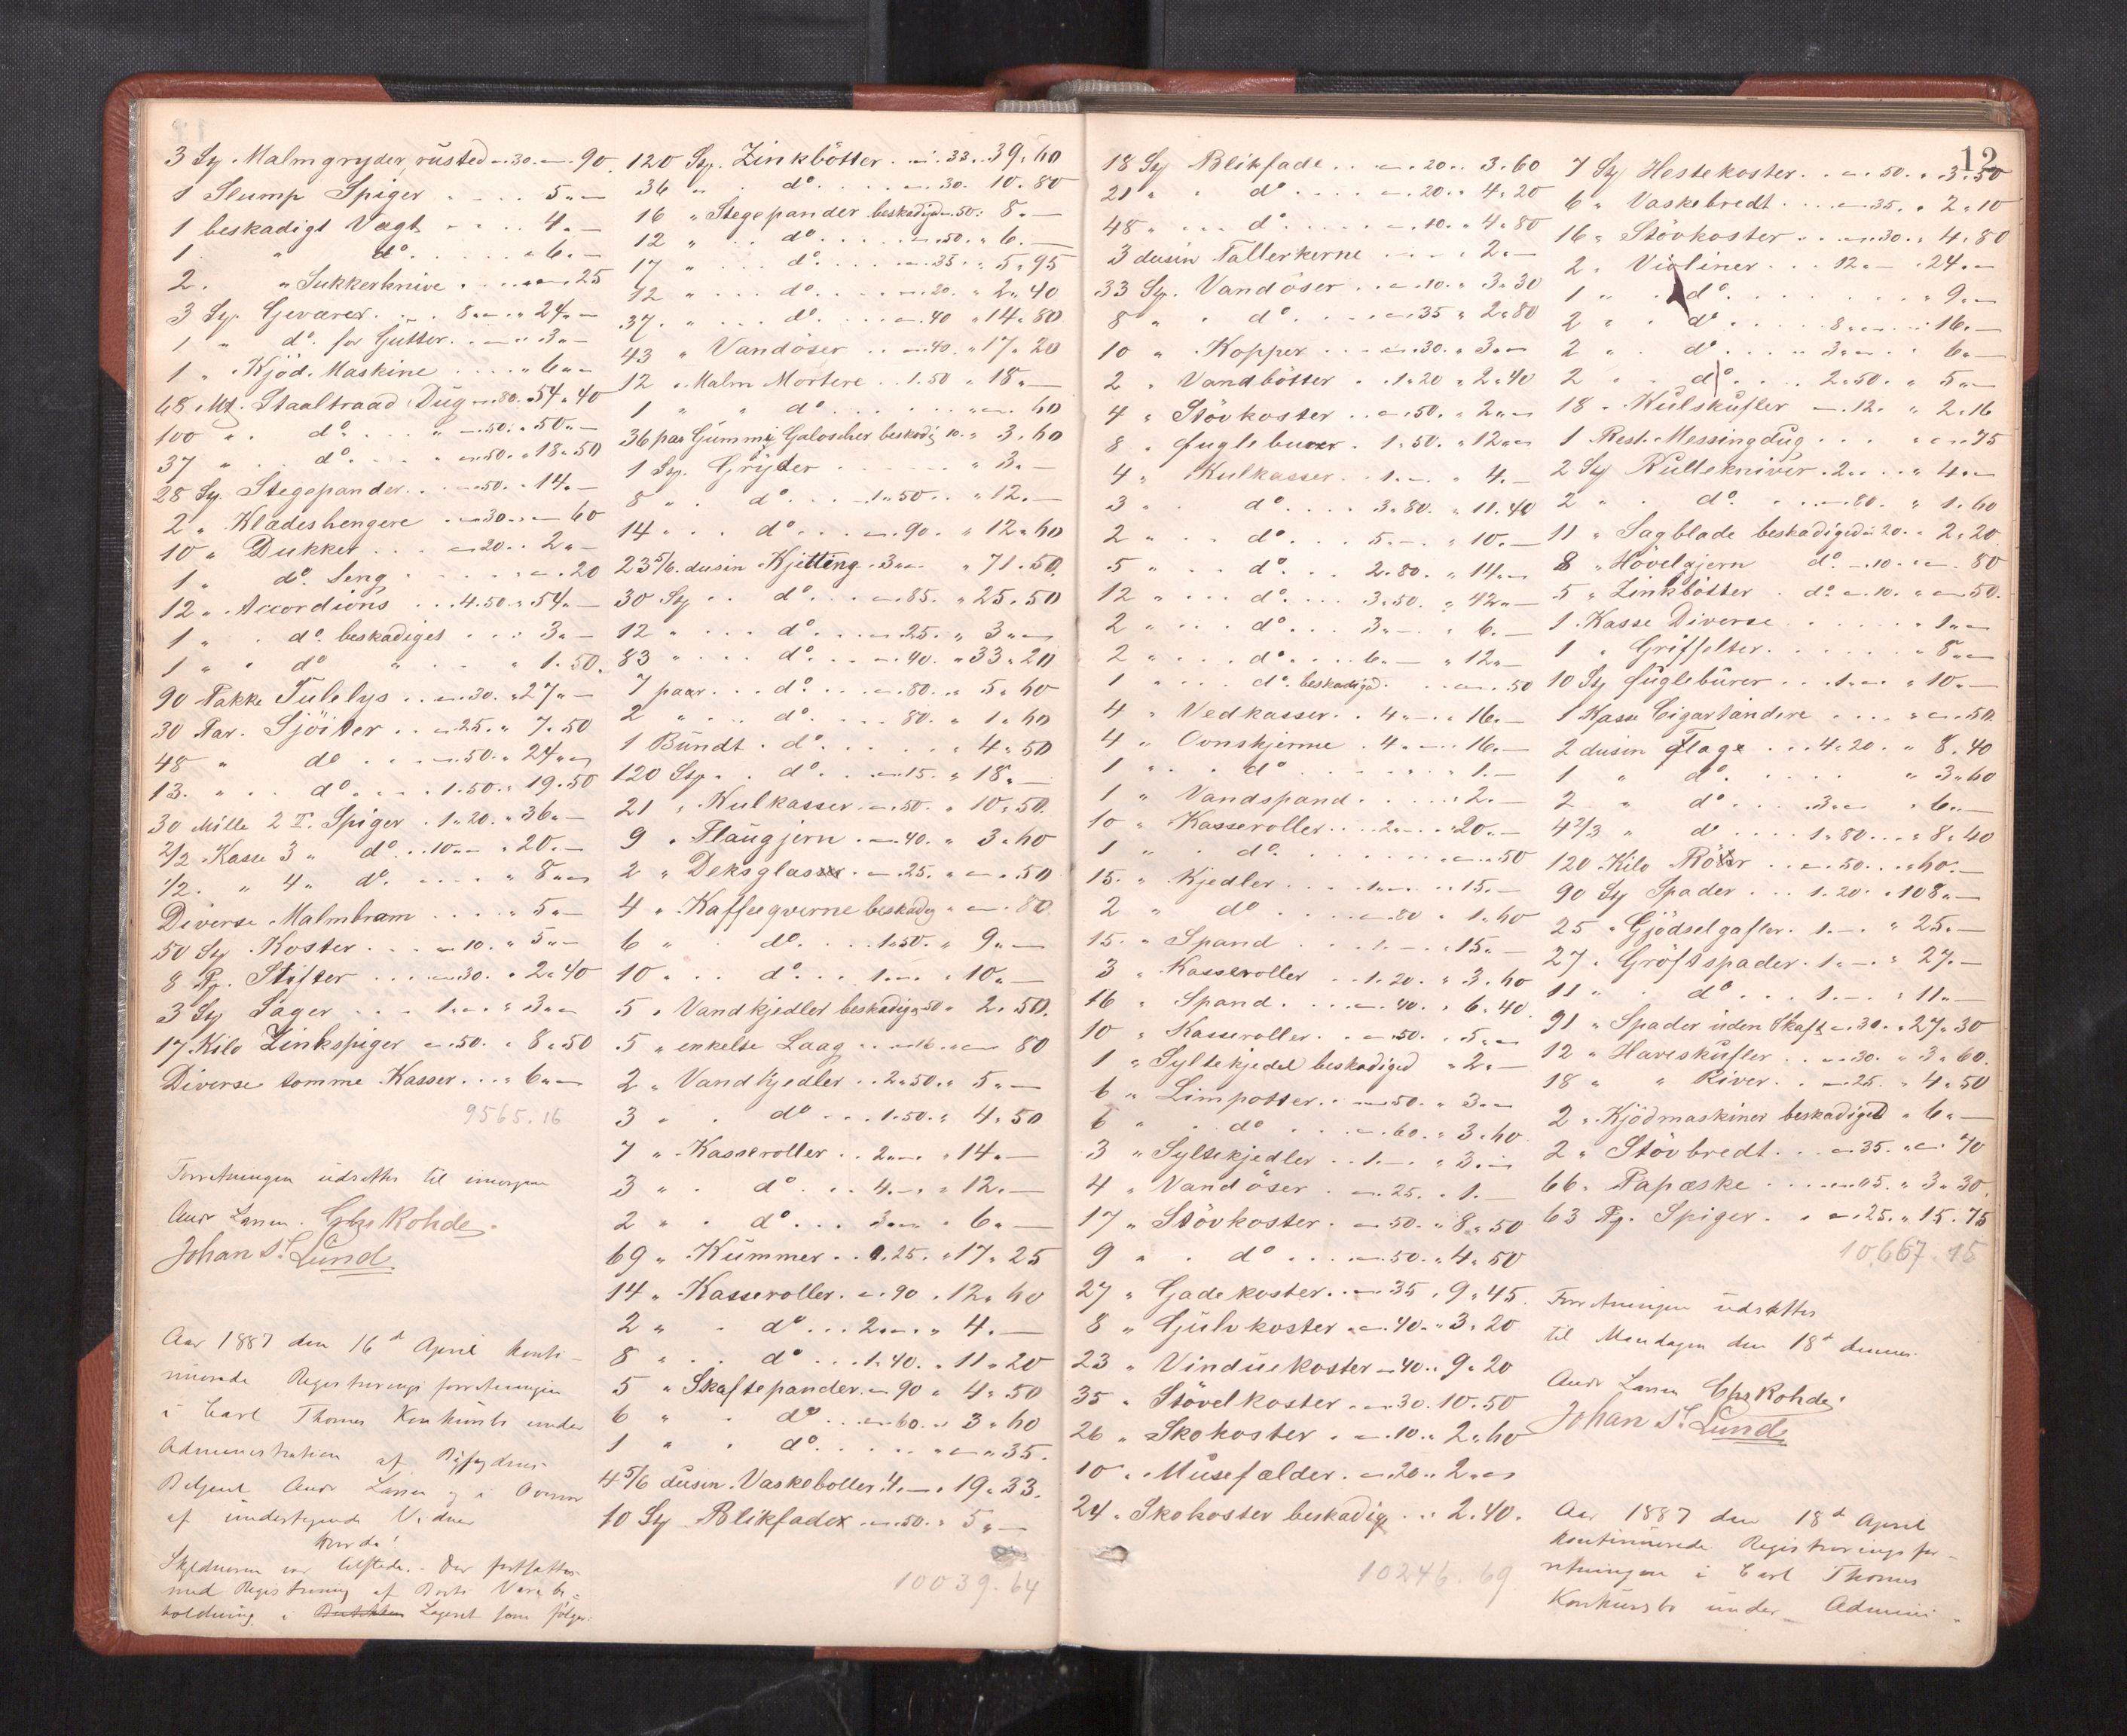 3 Sty. Malmgryder, rusted „ 30. „ 90.
1 Slump Spiger . . . . 5 „ —
1 beskadigt Vægt . . . . 4 „ —
1 „ do. . . . . . „ 6 „ —
2 . „ Sukkerknive . . . . „ 25
3 Sty. Geværer . . . 8 „ — „ 24 „ —
1 „ do. for Gutter . . . „ 3 „ —
1 „ Kjöd. Maskine . . . . „ 6 „ —
68 Mt. Staaltraad Dug „ 80. 54 „ 40
100 „ . do. . . „ — 50. „ 50 „ —
37 „ . . do. . . . — 50. „ 18 „ 50
28 Sty. Stegepander . . — 50. . 14 „ —
2 „ Kladeshengere . — 30. . — 60
10 „ Dukker . . . — 20. . 2 „ —
1 „ do. Seng . . . . . — . 20
12 „ Accordions . . . 4.50. „ 54 „ —
1 „ . do. beskadiget . . . . 3 „ —
1 „ . do „ . . „ 1.50.
90 Pakke Julelys . . — 30. „ 27 „ —
30 Par. Sjöiter . . — 25. „ 7.50
48 „ do . . . — 50. „ 24 „ —
13. „ . . do. . . . 1.50. „ 19.50
30 Mille 2 T. Spiger . 1 „ 20. „ 36 „ —
2/2 Kasse 3 „ do. . . 10 „ — „ 20 „ —
1/2. „ 4 „ do. . . . . . „ 8 „ —
Diverse Malmkram . . . . „ 5 „ —
50 Sty. Koster . . . — 10. „ 5 „ —
8 Pj. Stifter . . . . — 30. „ 2 „ 40
3 Sty Sager . . . 1 „ — „ 3 „ —
17 Kilo Zinkspiger — .50. „ 8 „ 50
Diverse tomme Kasser . . . „ 6 „ —
9565.16
Forretningen udsættes til imorgen
Andr Larsen. Chs Rohde.
Johan St. Lund
Aar 1887 den 16d April konti-
nuerede Registreringsforretningen
i Carl Thomes Konkursbo under
Administration af Byfogdens
Betjent Andr Larsen og i Overvær
af undertegnede Vidner
Hvorda!
Skyldneren var tilstede. – Der fortsattes
med Registrering af Boets Varebe-
holdning i Butikken Lageret som fölger:
120 Sty. Zinkbötter . — . 33. . 39 „ 60
36 „ . do. . . . . — 30. 10 „ 80
16 „ Stegepander beskadiged — 50. . 8 „ —
12 „ . . do. . . . . — 50. „ 6. —
17 „ . . . do. . . . . — 35. „ 5 „ 95
12 „ . . . do. . . . — 20. „ 2 „ 40
37. „ . . . do. . . . — . 40 „ 14 „ 80
43 „ Vandöser . . — 40. „ 17 „ 20
12 „ Malm Mortere . . 1.50 „ 18 „ —
1 „ „ do. . . . . . . „ — . 60
36 par Gummi Galoscher beskadig 10. „ 3 „ 60
1 Sty. Gryder . . . . . . „ 3 „ —
8 „ . do. . . . 1 „ 50. . „ 12. —
14 „ . . do. . . . — . 90. „ 12 „ 60
23 5/6. dusin Kjetting . 3 „ — „ 71.50.
30 Sty . . do. . . . — 85. „ 25.50
12 „ . . . do. . . . — 25. „ 3 „ —
83 „ . . . do. . . . — . 40. „ 33 „ 20
7 paar . . . do. . . . — . 80. „ 5 „ 60
2 „ . . do. . . . 80. „ 1 „ 60
1 Bundt . do. . . . . . „ 4 „ 50
120 Sty. . do. . . — 15. „ 18 „ —
21 „ Kulkasser . — 50. „ 10 „ 50.
9 „ Flaugjern . — 40. „ 3 „ 60
2 „ Deksglasser . — 25. „ — „ 50
4 „ Kaffeqverne beskadig „ — . 80.
6 „ . do. . . . 1 „ 50. „ 9 „ —
10 „ . . do. . . 1 „ — „ 10 „ —
5 „ Vandkjedler beskadig „ 50 „ 2 „ 50.
5 „ enkelte Laag . . — 16. „ — 80
2 „ Vandkjedler . . 2 „ 50. „ 5 „ —
3 „ . do . . . 1.50. „ 4.50
7 „ Kasseroller . . 2 „ — „ 14. —
3 „ . do. . . . 4. — „ 12. —
2 „ . do. . . 3 „ — . 6 „ —
69 „ Kummer . . „ .25. „ 17 „ 25
14 „ Kasseroller . — . 90 „ 12 „ 60
2 „ . do . . . 2 „ — „ 4. —
8 „ . . do . . . 1 „ 40. „ 11 „ 20
5 „ Skaftepander . — 90 „ 4 „ 50
6 „ . do . . . — 60. „ 3 „ 60
1 „ . do. . . . . . „ — „ 35.
4 5/6 dusin. Vaskeboller . 4. — „ 19 „ 33.
10 Sty Blikfade . — 50. „ 5 „ —
10039.64
12
18 Sty Blikfade . . . — 20. . 3.60
21 „ . do . . . . — 20. „ 4 „ 20
48 „ . . . d . . . . . — 10. „ 4 „ 80
3 dusin Tallerkerne . . . . . 2 „ —
33 Sty. Vandöser . . — 10. „ 3 „ 30
8 „ . do. . . . — 35 „ 2 „ 80
10 „ Kopper . . . — 30. „ 3 „ —
2 „ Vandbötter . . 1 „ 20 „ 2 „ 40
4 „ Stövkoster . . — .50. „ 2 „ —
8 „ fugleburer . 1 „ 50. „ 12 „ —
4 „ Kulkasser . . 1. — „ 4. —
3 „ . do. . . . 3 „ 80. „ 11.40
2 „ . . do. . . . 5. — „ 10. —
5 „ . . do. . . 2 „ 80. „ 14 „ —
12 „ . . . do. . . 3 „ 50. „ 42 „ —
2 „ . . . do. . . 3 „ — „ 6. —
2 „ . . . do. . . . 6 „ — „ 12 „ —
1 „ . . . do. beskadiged . . — . 50
4 „ Vedkasser . . 4 „ — „ 16. —
4 „ Ovnskjerme . 4 „ — 16. —
1 „ . . do . . . . . . . „ 1. —
1 „ Vandspand . . . . . „ 2. —
10 „ Kasseroller . . . 2 „ — . 20. —
1 „ . do. . . . . . . — „ 50
15. „ Kjedler . . . 1 „ — . 15. —
2 „ do . . . . — . 80 „ 1 „ 60
15. „ Spand . . . 1. — . 15 „ —
3 „ Kasseroller . . 1 „ 20. „ 3 „ 60
16 „ Spand . . . . — . 40. „ 6 „ 40.
10 „ Kasseroller . . — 50. „ 5 „ —
1 „ Syltekjedel beskadiged „ 2 „ —
6 „ Limpotter . . — 50. „ 3 „ —
6 „ . do . . . . — . 60. „ 3 „ 60
3 „ Syltekjedler . . 1. — „ 3 „ —
4 „ Vandöser . — . 25. „ 1. —
17 „ Stövkoster . — 50. „ 8 „ 50
9 „ . do . . . . — 50. „ 4 „ 50
27 „ Gadekoster . . — 35 . 9 „ 45.
8 „ Gulvkoster . — . 40. „ 3 „ 20
23 „ Vinduekoster — 40. „ 9 „ 20
35 „ Stövelkoster . — 30. 10.50
26 „ Skokoster . — . 10. „ 2 „ 60
10 „ Musefælder . — 20. „ 2 „ —
24 „ Skokoster beskadig . . . 2.40.
10246.69
7 Sty Hestekoster . . — 50. „ 3.50
6 „ Vaskebredt . . . — 35. „ 2 „ 10
16 „ Stövkoster . . — 30. „ 4 „ 80
2 „ Violiner . . . 12 „ — „ 24 „ —
1 „ . do . . . . . . . . „ 9 „ —
2 „ . do . . . . . 8 „ — „ 16. —
2 „ . do . . . . . 3 „ — „ 6 „ —
2 „ . do . . . . 2 „ 50. „ 5 „ —
18 „ Kulskufler . — 12. „ 2 „ 16
1 Rest. Messingdug . . . „ — „ 75
2 Sty Rulleknivir . 2 „ . „ 4 „ —
2 „ . do. . . . — 80. „ 1 „ 60
11 „ Sagblade beskadiged „ 20. „ 2 „ 20
8 „ Hövelgjern do. — . 10. „ — . 80
5 „ Zinkbötter . do. — . 10. „ — .50.
1 Kasse Diverse . . . . . . „ 1 „ —
1 „ Griffelter . . . . . . „ 8 „ —
10 Sty fuglebürer . . 1 „ — „ 10. —
1 Kasse Cigartændere . . . . „ — .50.
2 dusin Flage . . . 4 „ 20. „ 8.40
1 „ do. . . . . „ 3 „ 60
2 „ do . . . 3 „ — „ 6 „ —
4 2/3 „ do . . . . 1 „ 80 . . . „ 8 „ 40
120 Kilo . . — . 50. „ 60. —
90 Sty Spader . . . 1.20. „ 108 „ —
25 „ Gjödselgafler . 1. — „ 25. —
27 „ Gröftspader . 1. — „ 27. —
11 „ . do . . . . 1. — „ 11 „ —
91 „ Spader uden Skaft — . 30. „ 27 „ 30
12 „ Haveskufler . . — 30. „ 3 „ 60.
18 „ „ River . . — 25. „ 4 „ 50
2 „ Kjödmaskiner beskadiged „ 6 „ —
2 „ Stövbredt . . . — 35. „ — 70
66 „ Papæske . . . . — „ 05. „ 3 „ 30.
63 Pj. Spiger . . — . 25. „ 15.75
10,667.15
Forretningen udsættes
til Mandagen den 18d dennes.
Andr Larsen Chs Rohde.
Johan St. Lund
Aar 1887 den 18d April
kontinuerede Registreringsfor-
retningen i Carl Thomes
Konkursbo under Admini-